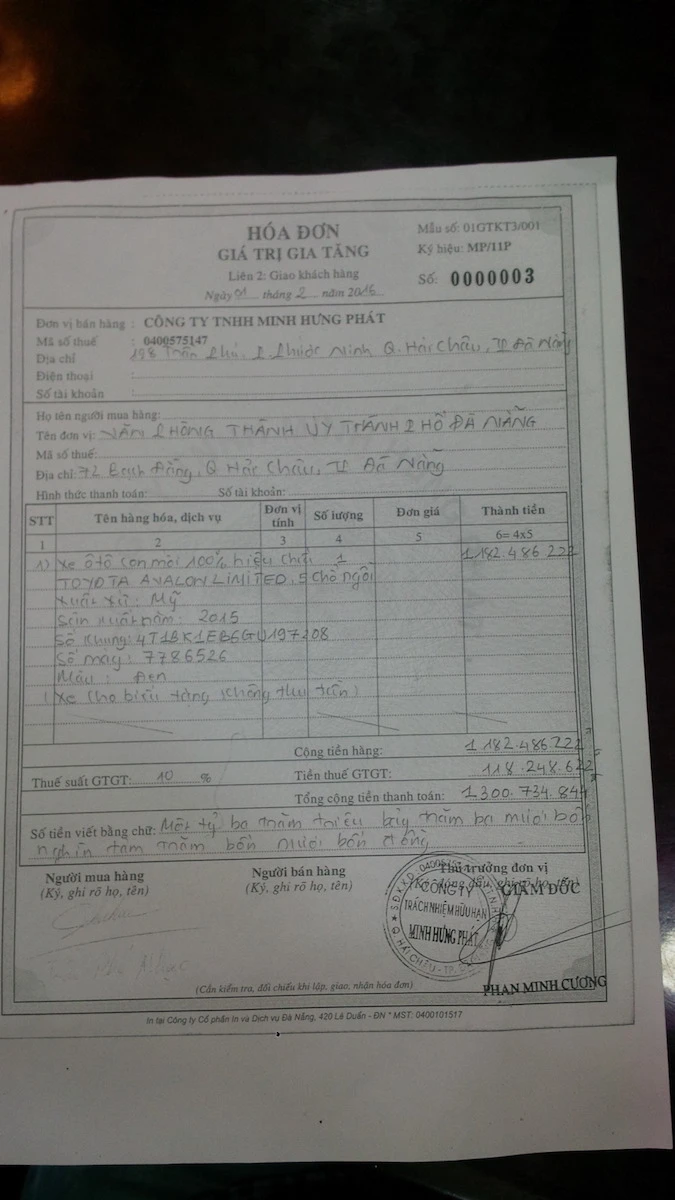 HÓA ĐƠN
GIÁ TRỊ GIA TĂNG
Liên 2: Giao khách hàng
Ngày 01 tháng 2 năm 2016
Mẫu số: 01GTKT3/001
Ký hiệu: MP/11P
Số: 0000003
Đơn vị bán hàng : CÔNG TY TNHH MINH HƯNG PHÁT
Mã số thuế : 0400575147
Địa chỉ 198 Trần Phú, P. Phước Ninh Q. Hải Châu, TP Đà Nẵng
Điện thoại :
Số tài khoản :
Họ tên người mua hàng:
Tên đơn vị: VĂN PHÒNG THÀNH ỦY THÀNH PHỐ ĐÀ NẴNG
Mã số thuế:
Địa chỉ: 72 Bạch Đằng, Q Hải Châu, TP Đà Nẵng
Hình thức thanh toán: Số tài khoản:
STT Tên hàng hóa, dịch vụ Đơn vị tính Số lượng Đơn giá Thành tiền
1 2 3 4 5 6= 4x5
1) Xe ôtô con mới 100% hiệu chiếc 1 1.182.486.222
TOYOTA AVALON LIMITED, 5 chỗ ngồi
Xuất xứ: Mỹ
Sản xuất năm: 2015
Số khung: 4T1BK1EB6GU197208
Số máy: 7786526
Màu : Đen
(Xe cho biếu tặng không thu tiền)
Cộng tiền hàng: 1.182.486.222
Thuế suất GTGT: 10 % Tiền thuế GTGT: 118.248.622
Tổng cộng tiền thanh toán: 1.300.734.844
Số tiền viết bằng chữ: Một tỷ ba trăm triệu bảy trăm ba mươi bốn
nghìn tám trăm bốn mươi bốn đồng
Người mua hàng Người bán hàng Thủ trưởng đơn vị
(Ký, ghi rõ họ, tên) (Ký, ghi rõ họ, tên) (Ký, đóng dấu, ghi rõ họ, tên)
GIÁM ĐỐC
CÔNG TY
TRÁCH NHIỆM HỮU HẠN
MINH HƯNG PHÁT
Q. HẢI CHÂU - TP.
PHAN MINH CƯƠNG
(Cần kiểm tra, đối chiếu khi lập, giao, nhận hóa đơn)
In tại Công ty Cổ phần In và Dịch vụ Đà Nẵng, 420 Lê Duẩn - ĐN * MST: 0400101517